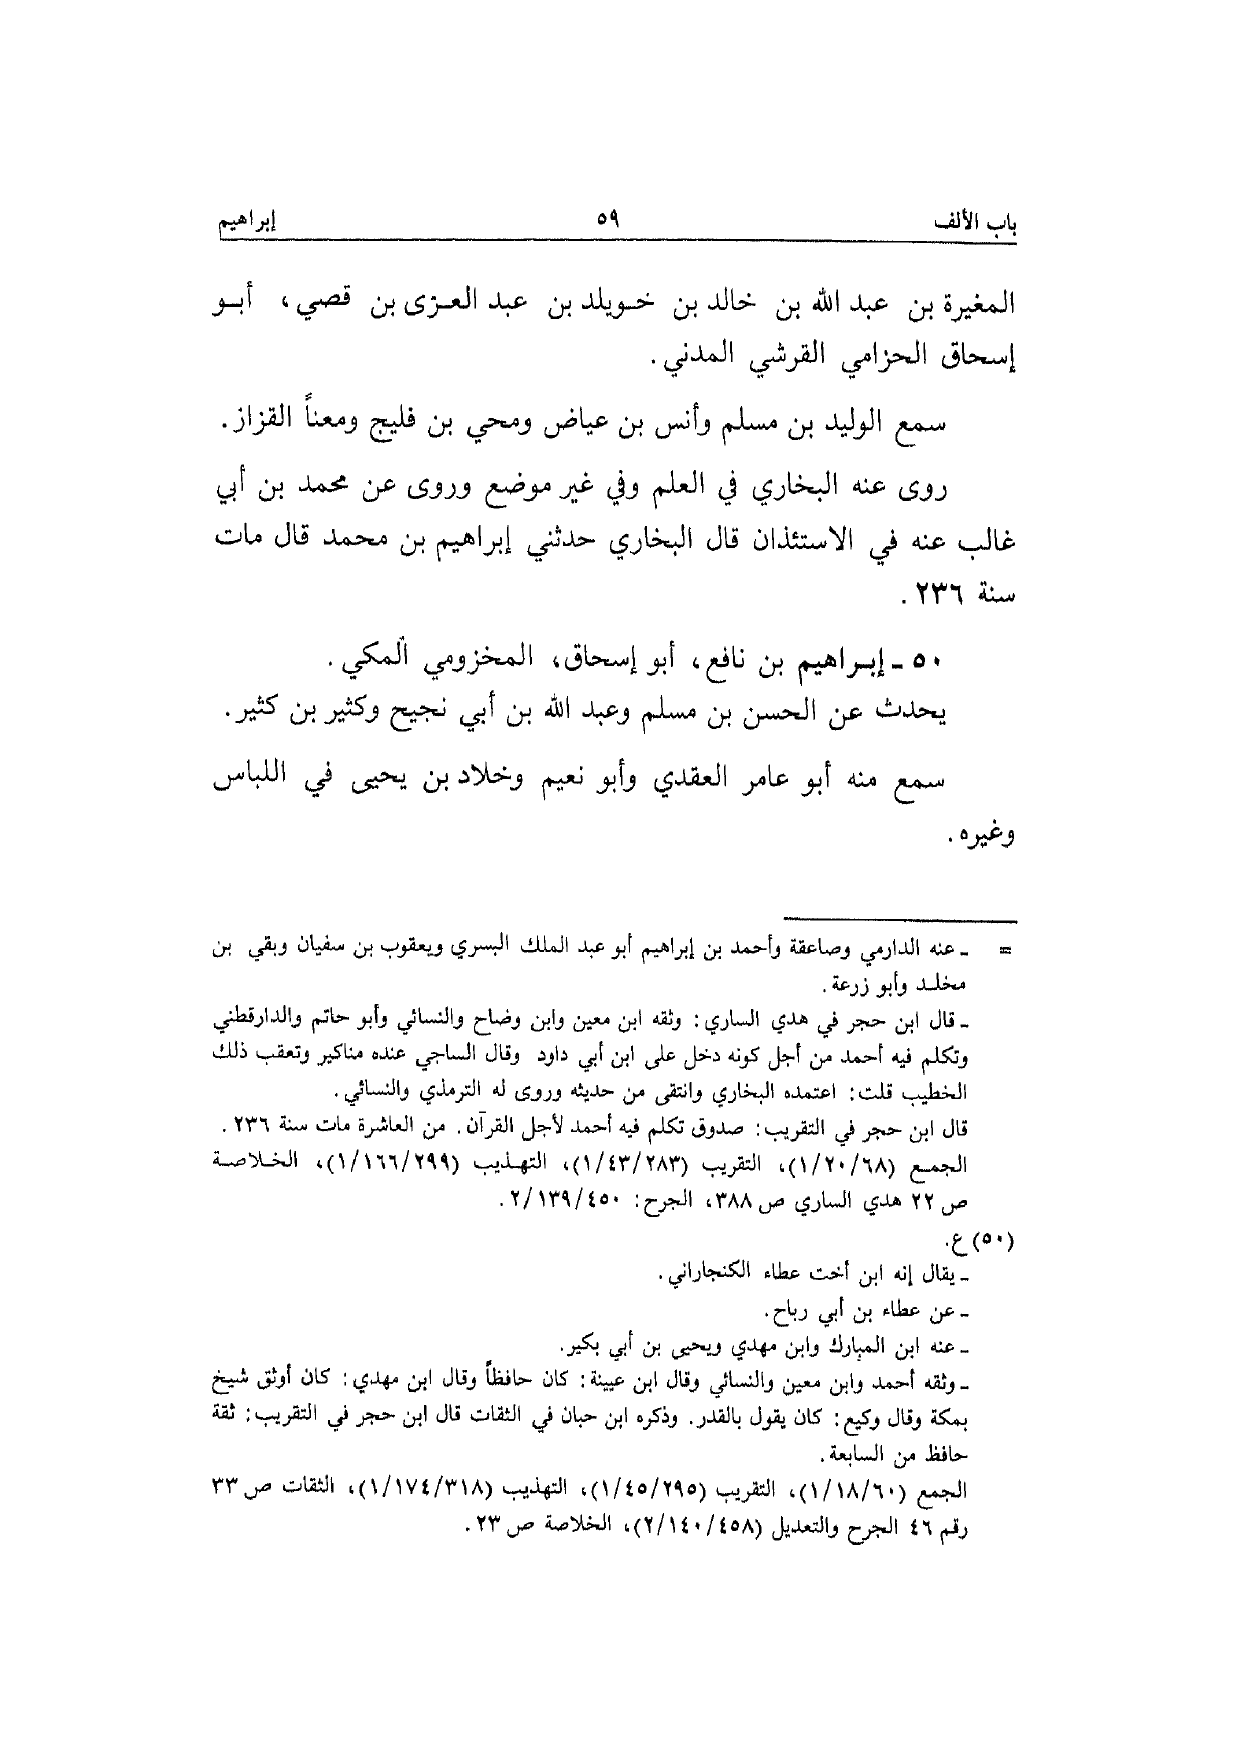 باب الألف ٥٩ إبراهيم
المغيرة بن عبد الله بن خالد بن خويلد بن عبد العزى بن قصي، أبو
إسحاق الحزامي القرشي المدني.
سمع الوليد بن مسلم وأنس بن عياض ومحي بن فليج ومعناً القزاز.
روى عنه البخاري في العلم وفي غير موضع وروى عن محمد بن أبي
غالب عنه في الاستئذان قال البخاري حدثني إبراهيم بن محمد قال مات
سنة ٢٣٦.
٥٠ - إبراهيم بن نافع، أبو إسحاق، المخزومي المكي.
يحدث عن الحسن بن مسلم وعبد الله بن أبي نجيح وكثير بن كثير.
سمع منه أبو عامر العقدي وأبو نعيم وخلاد بن يحيى في اللباس
وغيره.
= - عنه الدارمي وصاعقة وأحمد بن إبراهيم أبو عبد الملك البسري ويعقوب بن سفيان وبقي بن
مخلد وأبو زرعة.
- قال ابن حجر في هدي الساري: وثقه ابن معين وابن وضاح والنسائي وأبو حاتم والدارقطني
وتكلم فيه أحمد من أجل كونه دخل على ابن أبي داود وقال الساجي عنده مناكير وتعقب ذلك
الخطيب قلت: اعتمده البخاري وانتقى من حديثه وروى له الترمذي والنسائي.
قال ابن حجر في التقريب: صدوق تكلم فيه أحمد لأجل القرآن. من العاشرة مات سنة ٢٣٦.
الجمع (١/٢٠/٦٨)، التقريب (١/٤٣/٢٨٣)، التهذيب (١/١٦٦/٢٩٩)، الخلاصة
ص ٢٢ هدي الساري ص ٣٨٨، الجرح: ٢/١٣٩/٤٥٠.
(٥٠) ع.
- يقال إنه ابن أخت عطاء الكنجاراني.
- عن عطاء بن أبي رباح.
- عنه ابن المبارك وابن مهدي ويحيى بن أبي بكير.
- وثقه أحمد وابن معين والنسائي وقال ابن عيينة: كان حافظاً وقال ابن مهدي: كان أوثق شيخ
بمكة وقال وكيع: كان يقول بالقدر. وذكره ابن حبان في الثقات قال ابن حجر في التقريب: ثقة
حافظ من السابعة.
الجمع (١/١٨/٦٠)، التقريب (١/٤٥/٢٩٥)، التهذيب (١/١٧٤/٣١٨)، الثقات ص ٣٣
رقم ٤٦ الجرح والتعديل (٢/١٤٠/٤٥٨)، الخلاصة ص ٢٣.